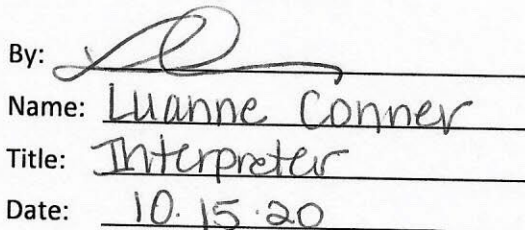 By:
Name: Luanne Conner
Title: Interpreter
Date: 10.15.20